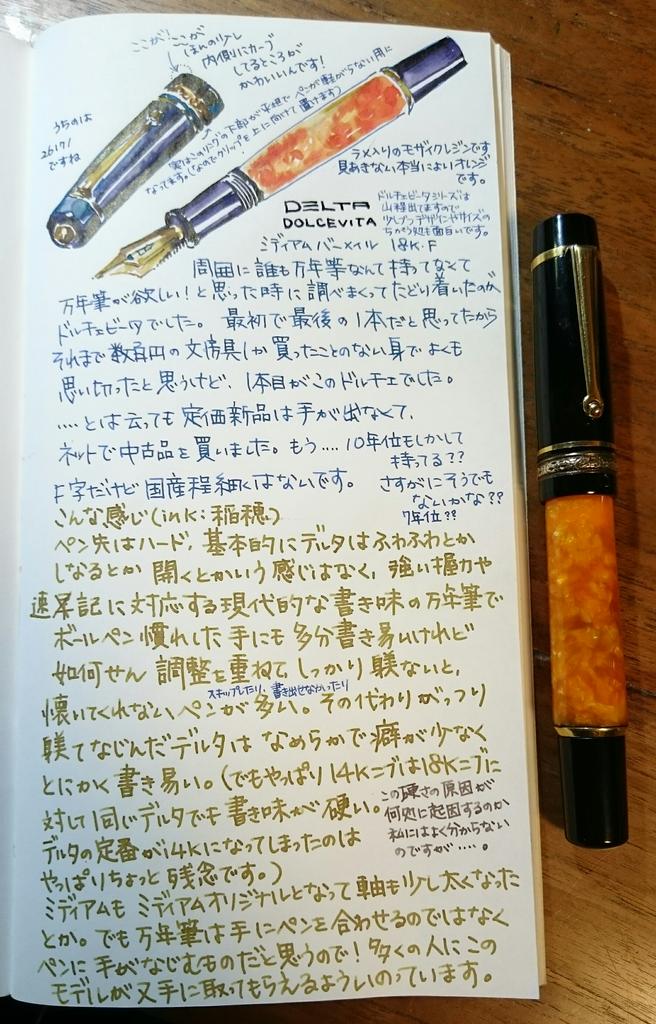 ここが！ここが
ほんの少し
内側にカーブ
してるところが
かわいいんです！
うちのは
です
実はこのリングの下部が平坦で ペンが転がらない用に
なってます。(なのでクリップを上に向けて置けます)
ラメ入りのモザイクレジンです
見あきない本当によいオレンジ
です。
DELTA
DOLCEVITA
ドルチェビータシリーズは
山程出てますので
少しづつデザインやサイズの
ちがう処も面白いです。
ミディアム バーメイル 18K・F
周囲に誰も万年筆なんて持ってなくて
万年筆が欲しい！と思った時に調べまくってたどり着いたのが
ドルチェビータでした。 最初で最後の1本だと思ってたから
それまで数百円の文房具しか買ったことのない身でよくも
思い切ったと思うけど、1本目がこのドルチェでした。
....とは云っても定価新品は手が出なくて、
ネットで中古品を買いました。もう.... 10年位もしかして
持ってる??
さすがにそうでも
ないかな??
7年位??
F字だけど国産程細くはないです。
こんな感じ(ink:稲穂)
ペン先はハード、基本的にデルタはふわふわとか
しなるとか 開くとかいう感じはなく、強い握力や
速記に対応する現代的な書き味の万年筆で
ボールペン慣れした手にも多分書き易いけれど
如何せん 調整を重ねて しっかり躾ないと、
スキップしたり、書き出せなかったり
懐いてくれないペンが多い。その代わりがっつり
躾てなじんだデルタは なめらかで癖が少なく
とにかく書き易い。(でもやっぱり14Kニブは18Kニブに
対して同じデルタでも書き味が硬い。
この硬さの原因が
何処に起因するのか
私にはよく分からない
のですが....。
デルタの定番が14Kになってしまったのは
やっぱりちょっと残念です。)
ミディアムも ミディアムオリジナルとなって軸も少し太くなった
とか。でも万年筆は手にペンを合わせるのではなく
ペンに手がなじむものだと思うので！多くの人にこの
モデルが又手に取ってもらえるよういのっています。